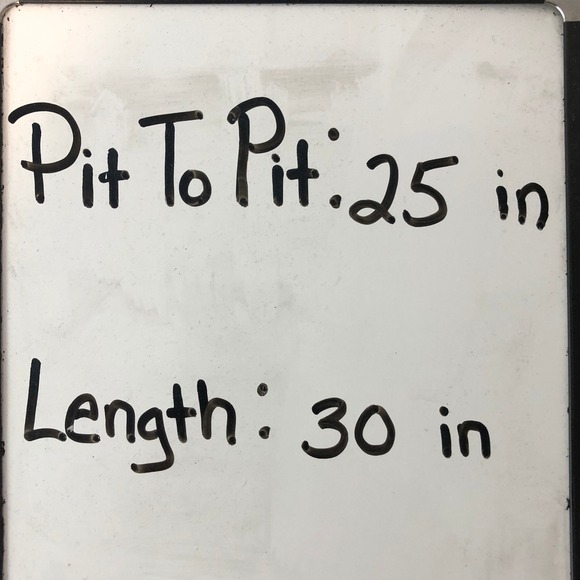 Pit To Pit: 25 in
Length: 30 in